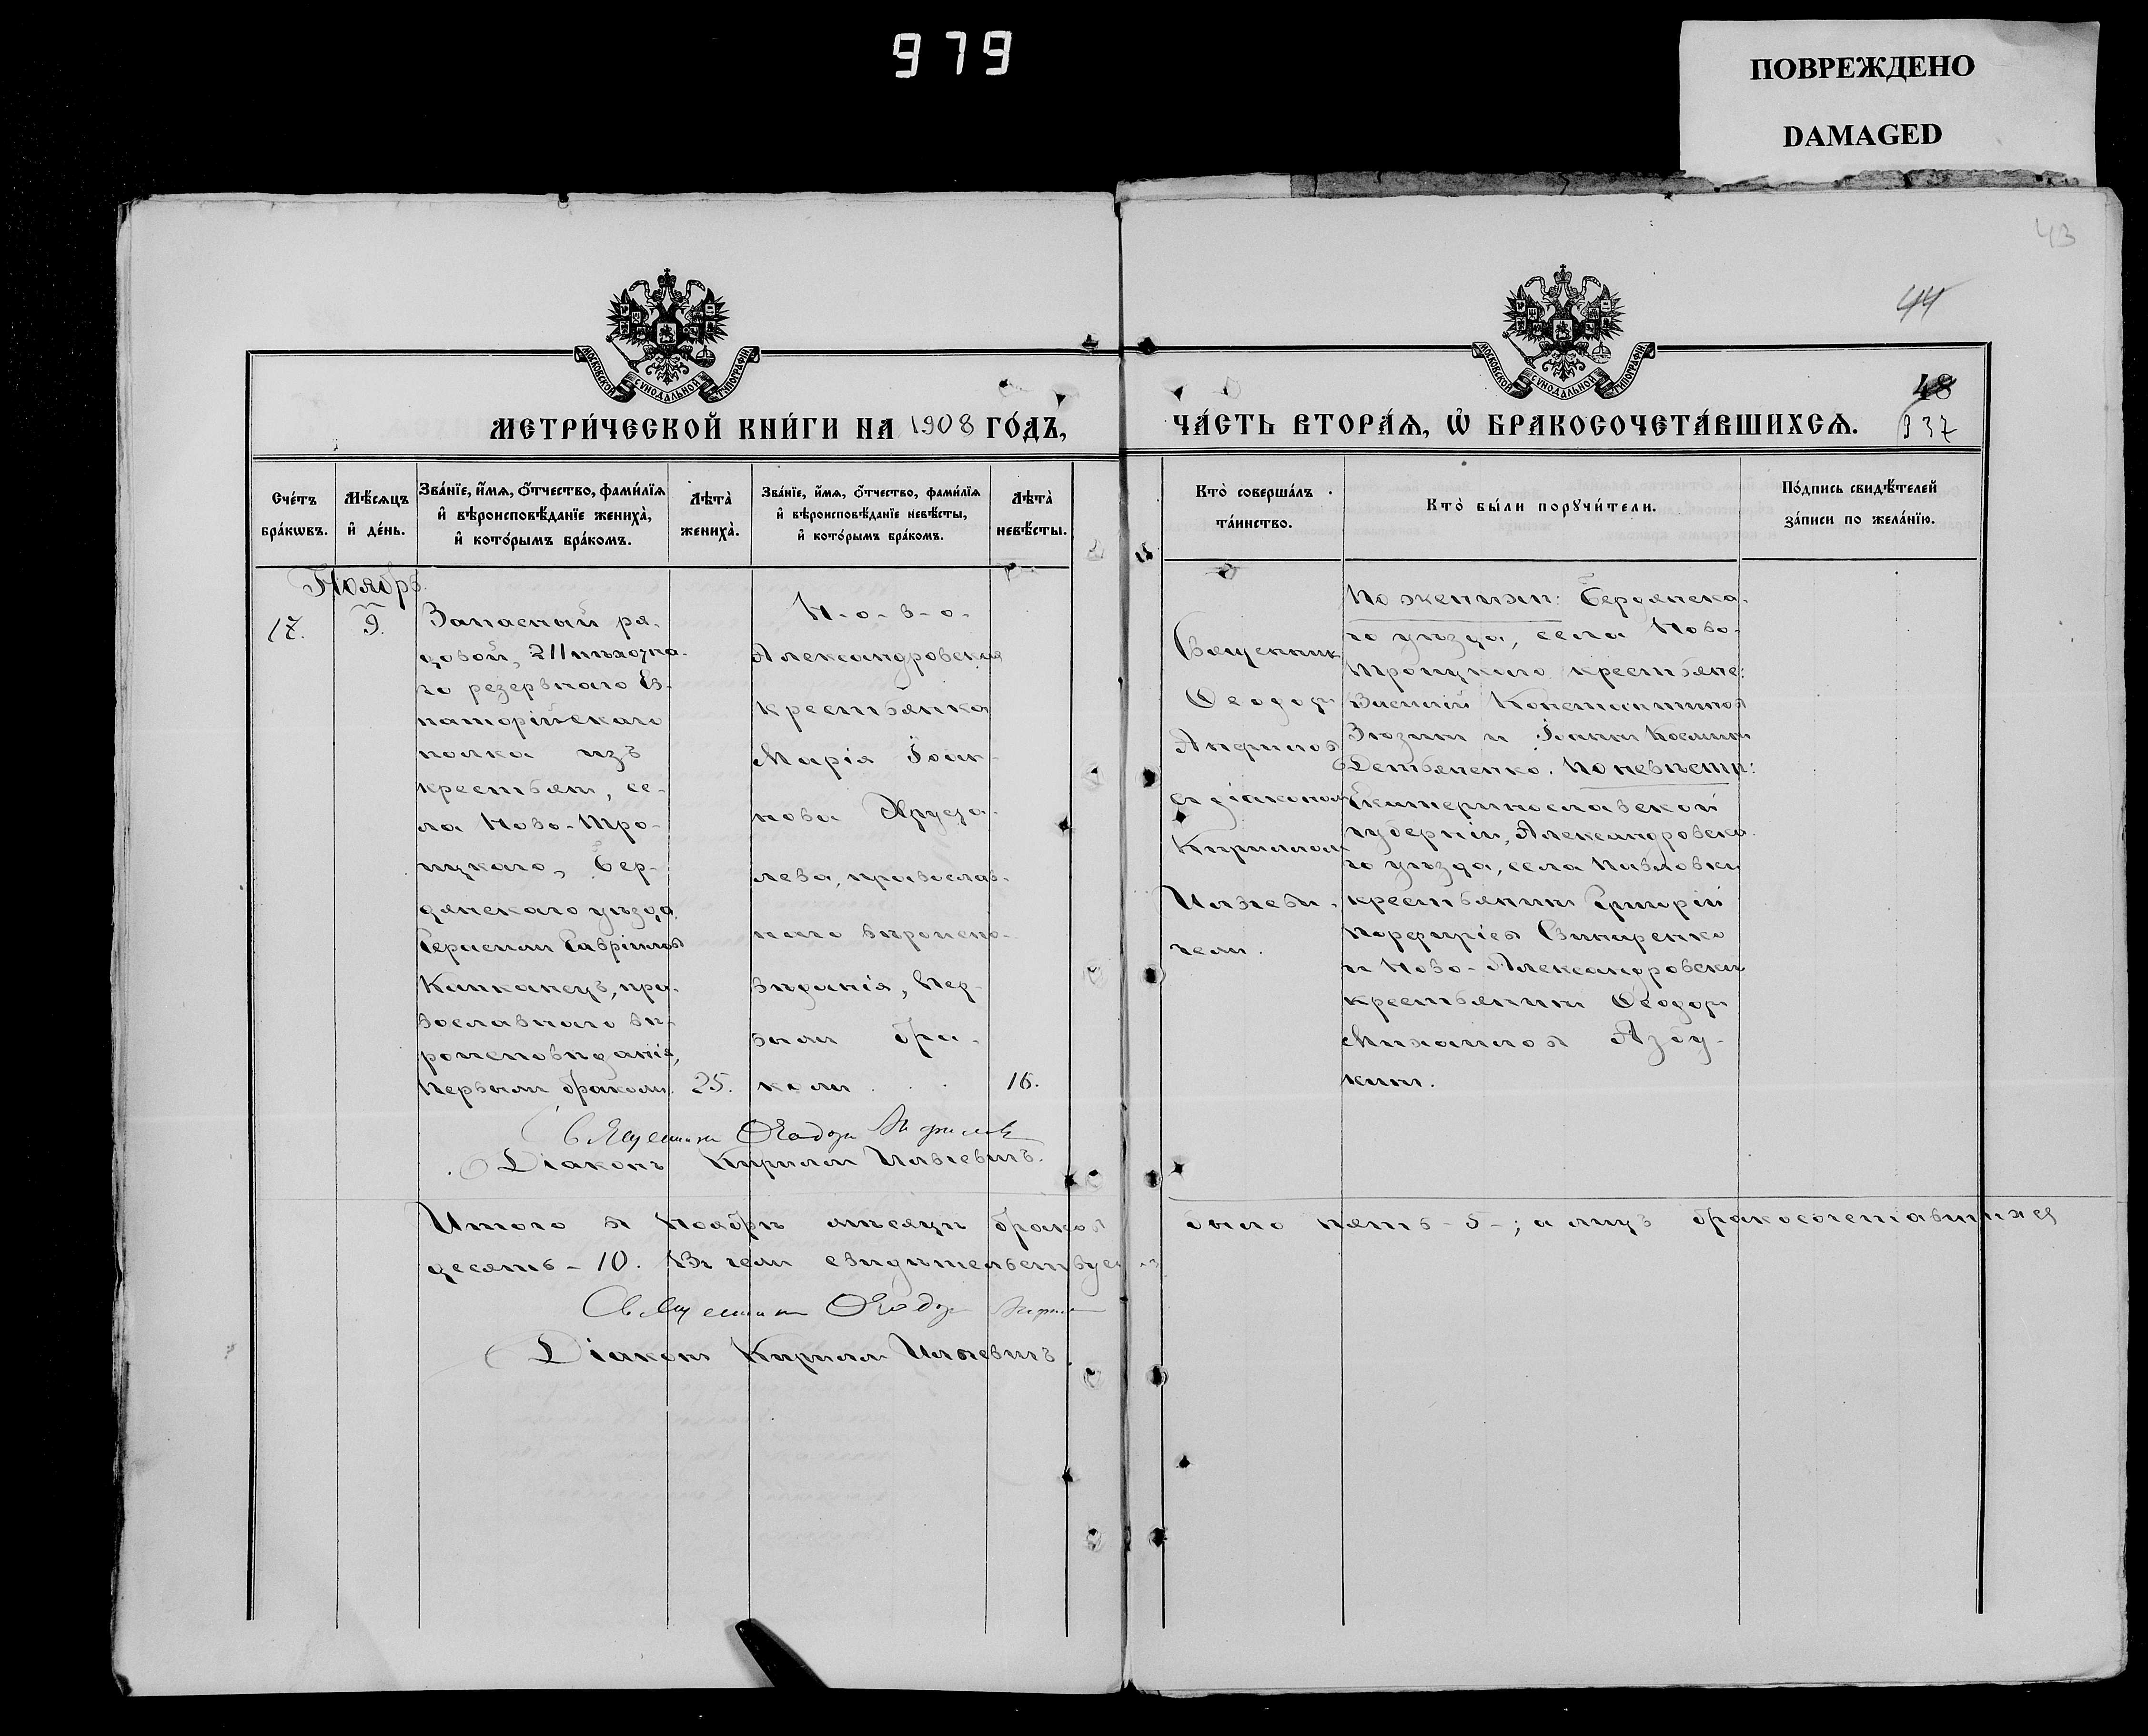 979
ПОВРЕЖДЕНО
DAMAGED
43
44
48
937
МОСКОВСКОЙ СѴНОДАЛЬНОЙ ТИПОГРАФІИ
МОСКОВСКОЙ СѴНОДАЛЬНОЙ ТИПОГРАФІИ
МЕТРИ́ЧЕСКОЙ КНИ́ГИ НА 1908 ГО́ДЪ,
ЧА́СТЬ ВТОРА́Ѧ, Ѽ БРАКОСОЧЕТА́ВШИХСѦ.
Сче́тъ
бра́кѡвъ.
Мѣ́сѧцъ
и҆ де́нь.
Зва́нїе, и҆́мѧ, ѻ҆́тчество, фами́лїѧ
и҆ вѣроисповѣ́данїе жениха̀,
и҆ кото́рымъ бра́комъ.
Лѣта̀
жениха̀.
Зва́нїе, и҆́мѧ, ѻ҆́тчество, фами́лїѧ
и҆ вѣроисповѣ́данїе невѣ́сты,
и҆ кото́рымъ бра́комъ.
Лѣта̀
невѣ́сты.
Кто̀ соверша́лъ
та́инство.
Кто̀ бы́ли порꙋчи́тели.
По́дпись свидѣ́телей
за́писи по жела́нїю.
Ноябрь.
17.
9.
Запасный ря-
довой, пѣхотна-
го резервнаго Ев-
паторійскаго
полка изъ
крестьян, се-
ла Ново-Тро-
ицкаго, Бер-
дянскаго уѣзда
Герасим Гавріилов
Капканецъ, пра-
вославнаго вѣ-
роисповѣданія,
первым браком.
25.
Н-о-в-о-
Александровская
крестьянка
Марія Іоан-
нова Хруста-
лева, православ-
наго вѣроиспо-
вѣданія, пер-
вым бра-
ком.
16.
Священник
Ѳеодор
Анфилов
съ діаконом
Кириллом
Ильеви-
чем.
По жениху: Бердянска-
го уѣзда, села Ново-
Троицкаго крестьяне:
Василій Константинов
Зюзин и Іоанн Космин
Демьяненко. По невѣстѣ:
Екатеринославской
губерніи, Александровска-
го уѣзда, села Павловки
крестьянин Григорій
Порфиріев Винаренко
и Ново-Александровскій
крестьянин Ѳеодор
Михаилов Азбу-
кин.
Священник Ѳеодор Анфилов
Діаконъ Кирилл Ильевичъ.
Итого в Ноябрѣ мѣсяцѣ браков было пять - 5 -; а лицъ бракосочетавшихся
десять - 10. В чем свидѣтельствуем
Священник Ѳеодор Анфилов
Діакон Кирилл Ильевичъ.